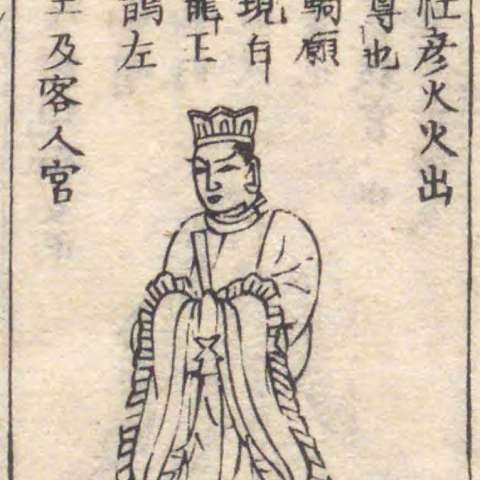 社彦火火出
尊也
騎
現白
龍王
左
及客人宮